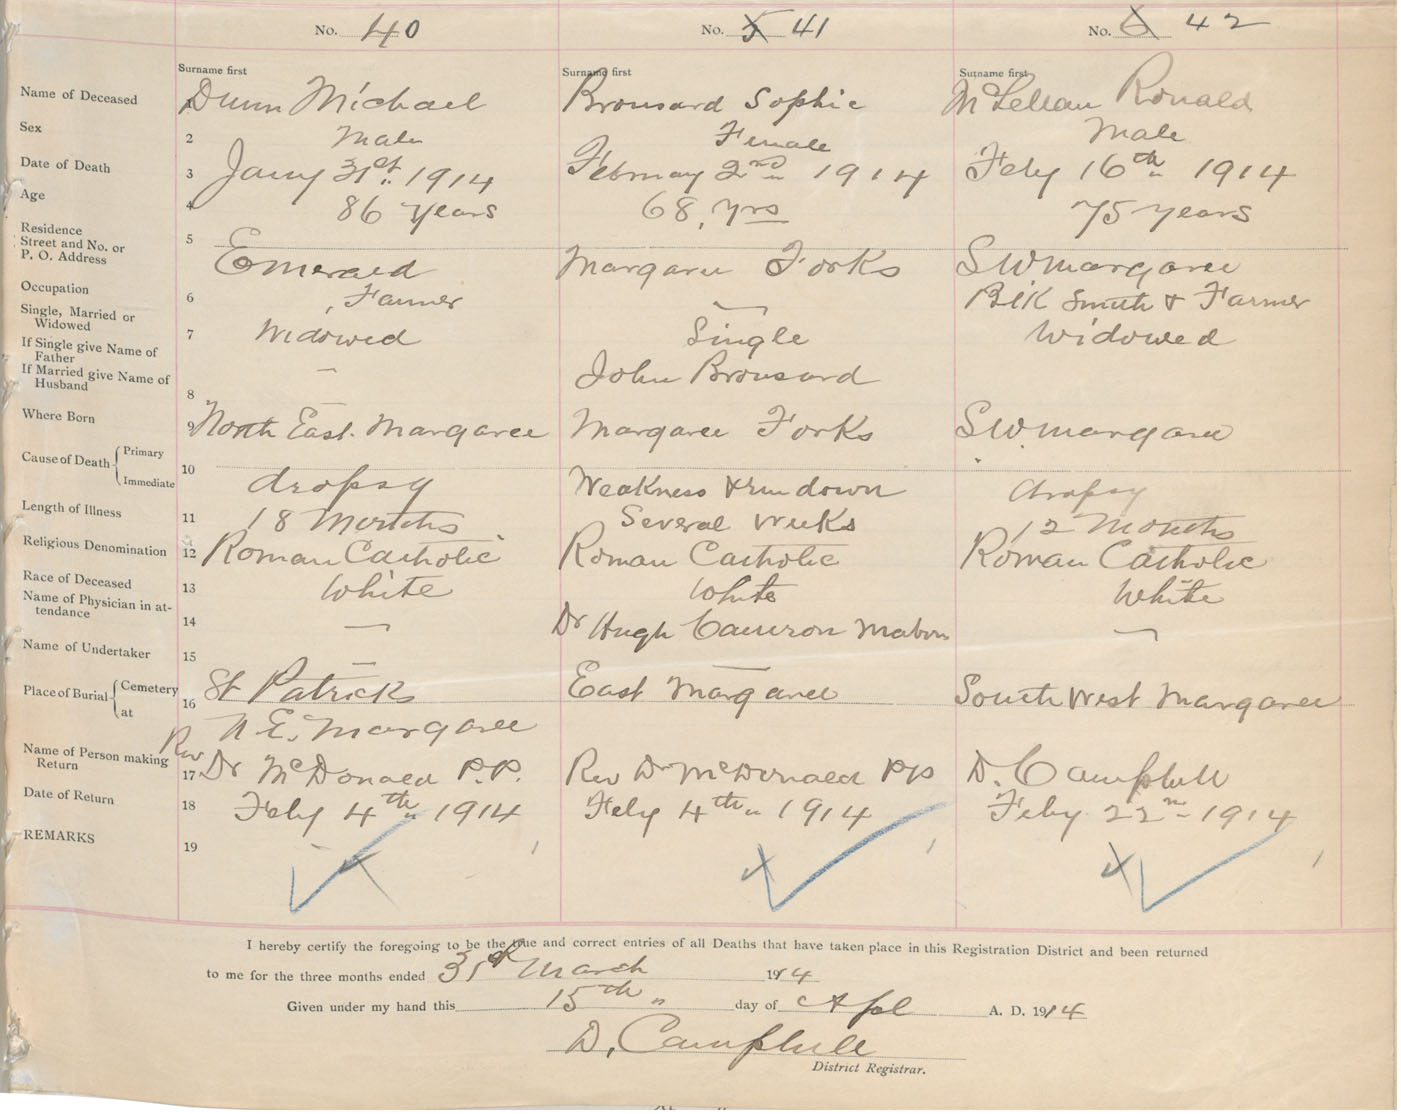 No. 40
No. 5 41
No. 6 42
Surname first
Surname first
Surname first
Name of Deceased 1 Dunn Michael Brousard Sophie McLellan Ronald
Sex 2 Male Female Male
Date of Death 3 Jany 31st " 1914 February 2nd " 1914 Feby 16th " 1914
Age 4 86 Years 68, yrs 75 years
Residence
Street and No. or
P. O. Address 5 Emerald Margaree Forks S W Margaree
Occupation 6 Farmer — Blk Smith & Farmer
Single, Married or
Widowed 7 Widowed Single Widowed
If Single give Name of
Father
If Married give Name of
Husband 8 — John Brousard
Where Born 9 North East. Margaree Margaree Forks S W. Margaree
Cause of Death Primary
Immediate 10 dropsy Weakness & run down dropsy
Length of Illness 11 18 Months Several Weeks 12 Months
Religious Denomination 12 Roman Catholic Roman Catholic Roman Catholic
Race of Deceased 13 White White White
Name of Physician in at-
tendance 14 — Dr Hugh Cameron Mabou —
Name of Undertaker 15 — —
Place of Burial Cemetery
at 16 St Patricks East Margaree South West Margaree
N. E. Margaree
Name of Person making
Return 17 Rev Dr McDonald P.P. Rev Dr McDonald PP D. Campbell
Date of Return 18 Feby 4th " 1914 Feby 4th " 1914 Feby 22n " 1914
REMARKS 19
I hereby certify the foregoing to be the true and correct entries of all Deaths that have taken place in this Registration District and been returned
to me for the three months ended 31st March 1914
Given under my hand this 15th " day of Apl A. D. 1914
D. Campbell
District Registrar.